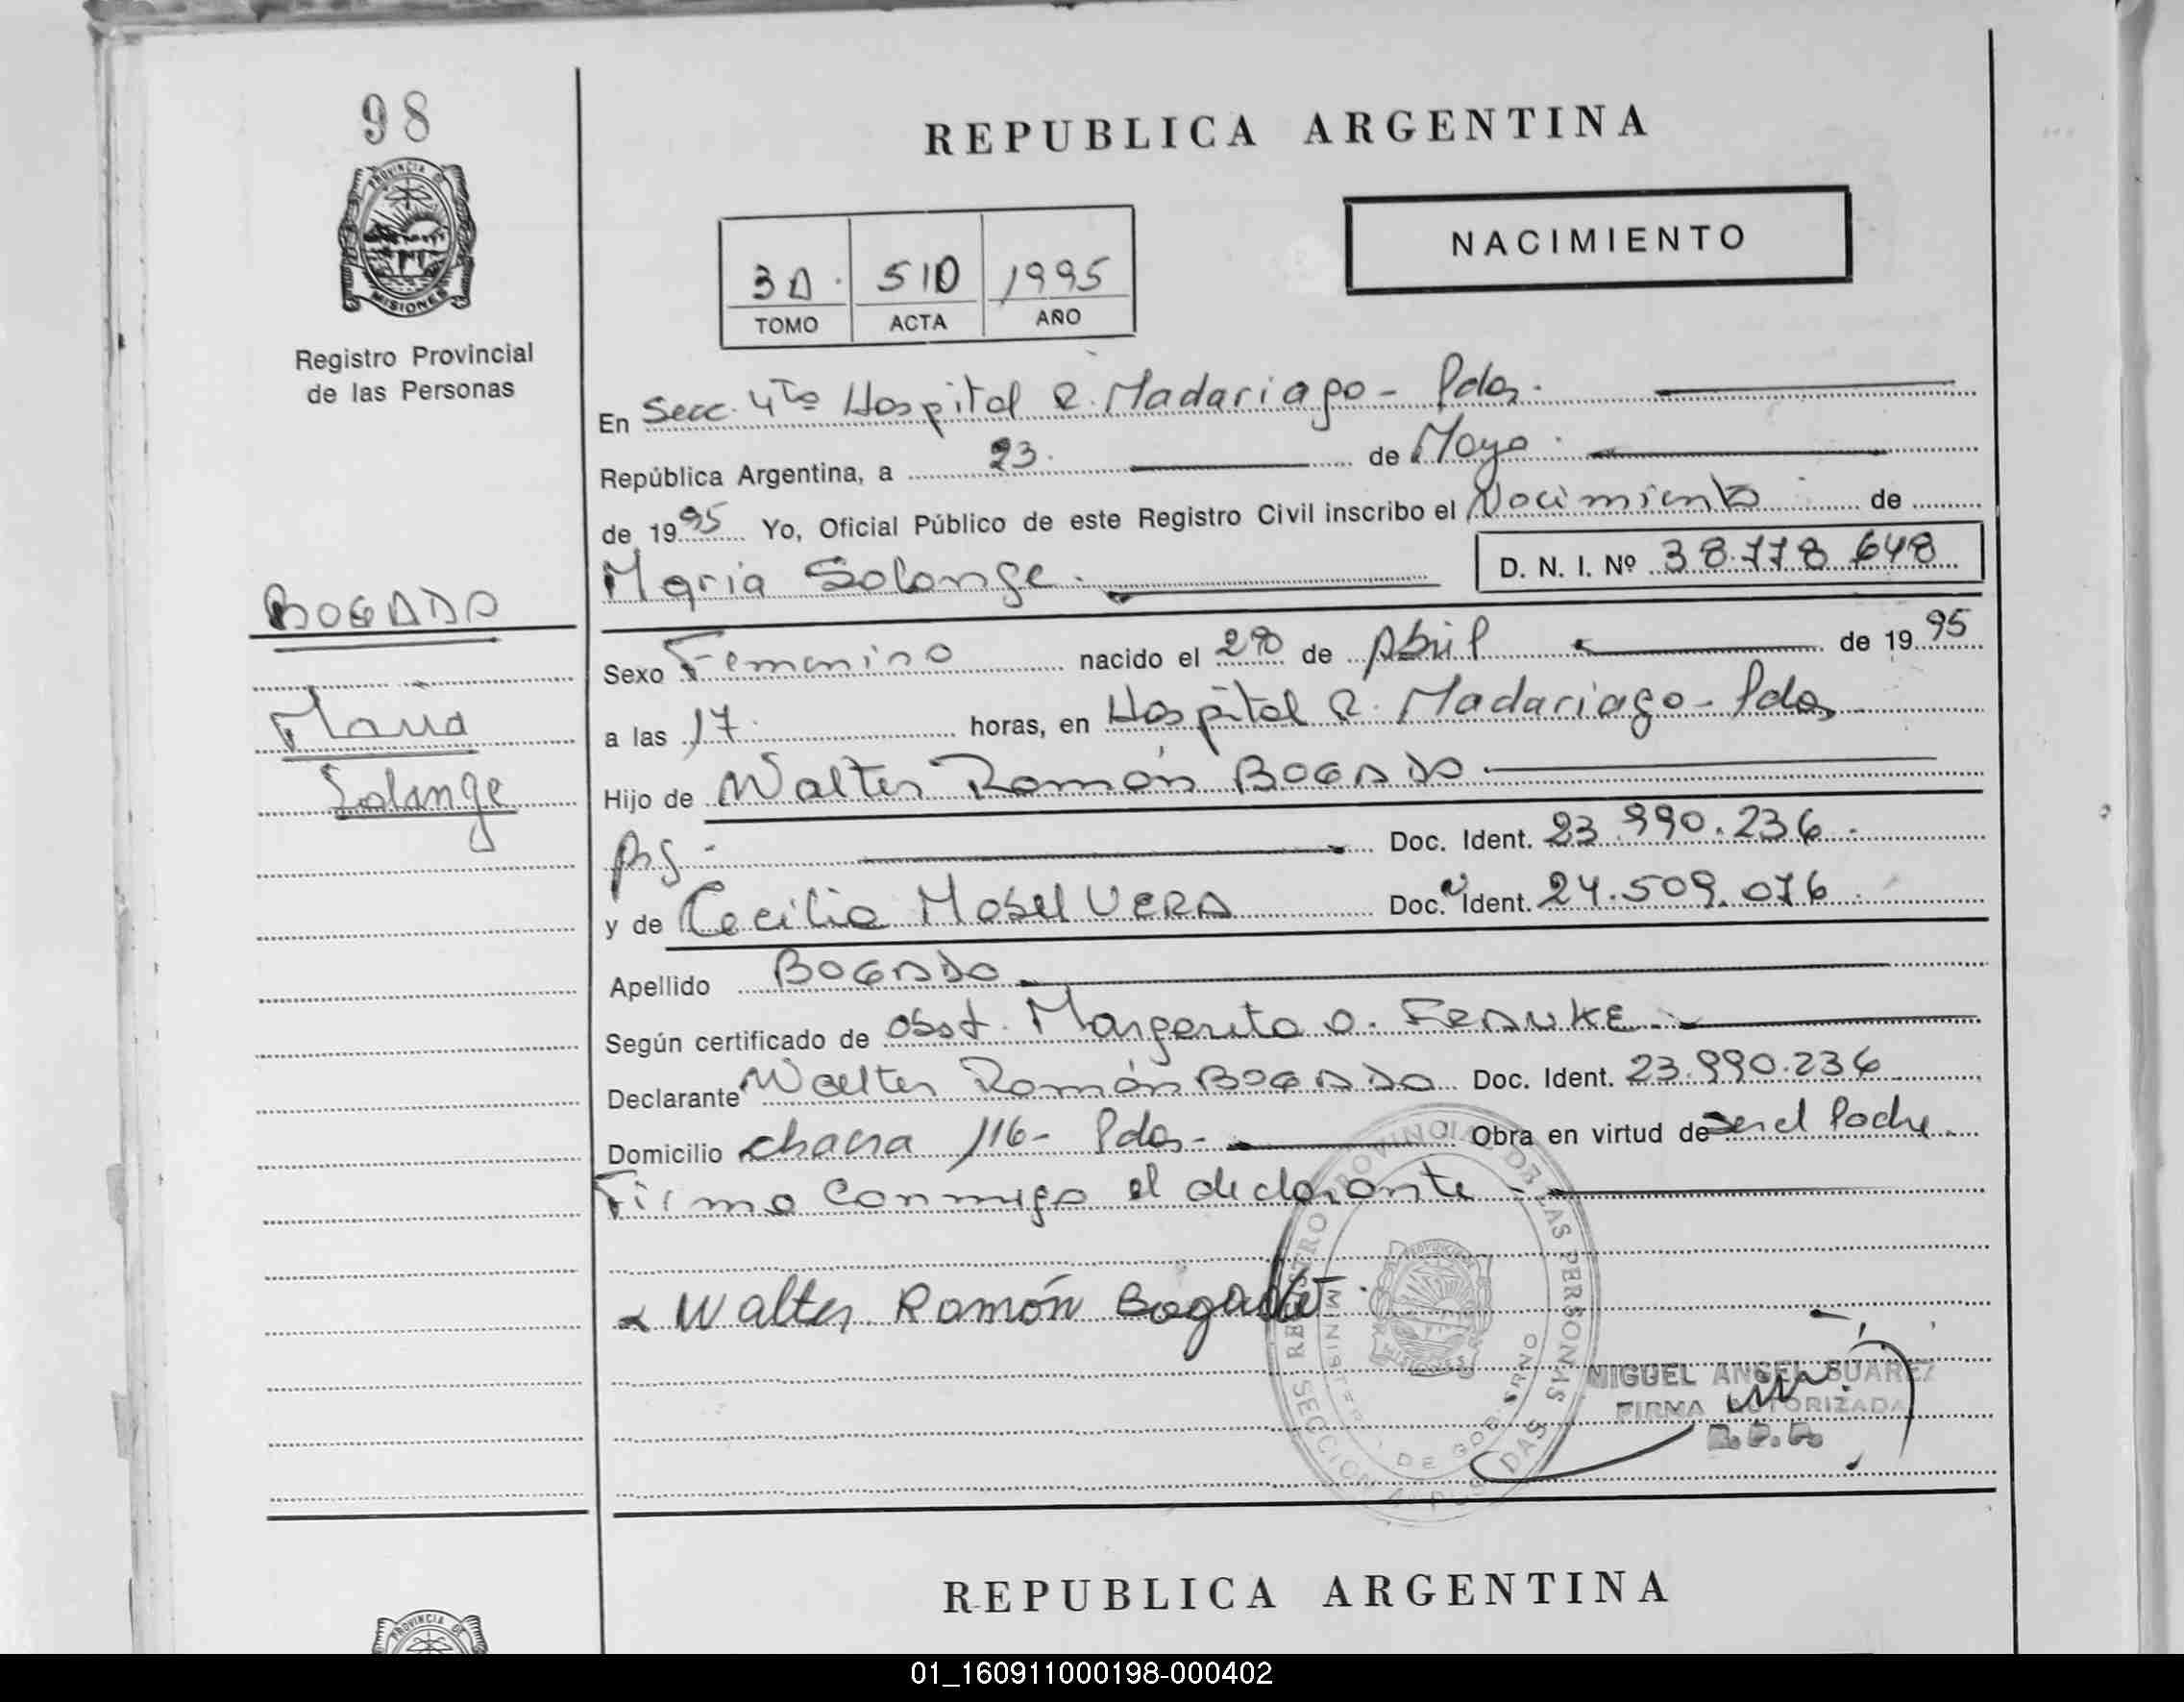 98
PROVINCIA DE
MISIONES
Registro Provincial
de las Personas
REPUBLICA ARGENTINA
NACIMIENTO
3A. 510 1995
TOMO ACTA AÑO
En Secc. 4ta Hospital R. Madariaga - Pdas.
República Argentina, a 23. de Mayo.
de 1995 Yo, Oficial Público de este Registro Civil inscribo el Nacimiento de
María Solange. D. N. I. Nº 38.778.648
BOGADO
María
Solange
Sexo Femenino nacido el de Abril de 1995
a las 17. horas, en Hospital R. Madariaga - Pdas.
Hijo de Walter Ramón BOGADO.
Doc. Ident. 23.990.236.
y de Cecilia Mabel VERA Doc. Ident. 24.509.076.
Apellido BOGADO
Según certificado de obst. Margarita O.
Declarante Walter Ramón BOGADO Doc. Ident. 23.990.236
Domicilio chacra 116 - Pdas. - Obra en virtud de ser el Padre.
Firma conmigo el declarante -
Walter Ramón Bogado
REGISTRO PROVINCIAL DE LAS PERSONAS
MINISTERIO DE GOBIERNO
SECCION 4a POSADAS
MIGUEL ANGEL SUAREZ
FIRMA AUTORIZADA
R.P.P.
REPUBLICA ARGENTINA
PROVINCIA DE
01_160911000198-000402